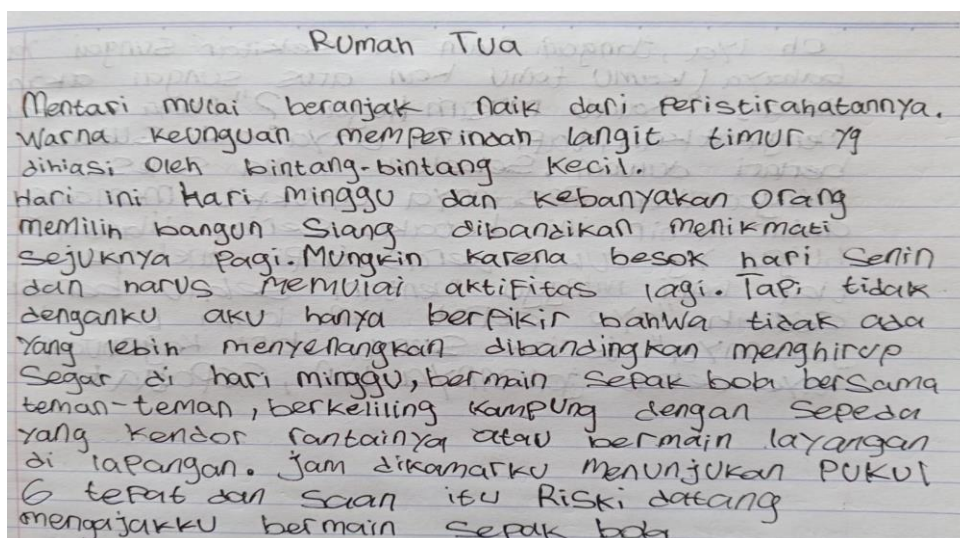 Rumah Tua
Mentari mulai beranjak naik dari peristirahatannya.
Warna keunguan memperindah langit timur yg
dihiasi oleh bintang-bintang kecil.
Hari ini Hari minggu dan kebanyakan orang
memilih bangun siang dibandikan menikmati
sejuknya pagi. Mungkin karena besok hari senin
dan harus memulai aktifitas lagi. Tapi tidak
denganku aku hanya berpikir bahwa tidak ada
yang lebih menyenangkan dibandingkan menghirup
segar di hari minggu, bermain sepak bola bersama
teman-teman, berkeliling kampung dengan sepeda
yang kendor rantainya atau bermain layangan
di lapangan. jam dikamarku menunjukan pukul
6 tepat dan saan itu Riski datang
mengajakku bermain sepak bola